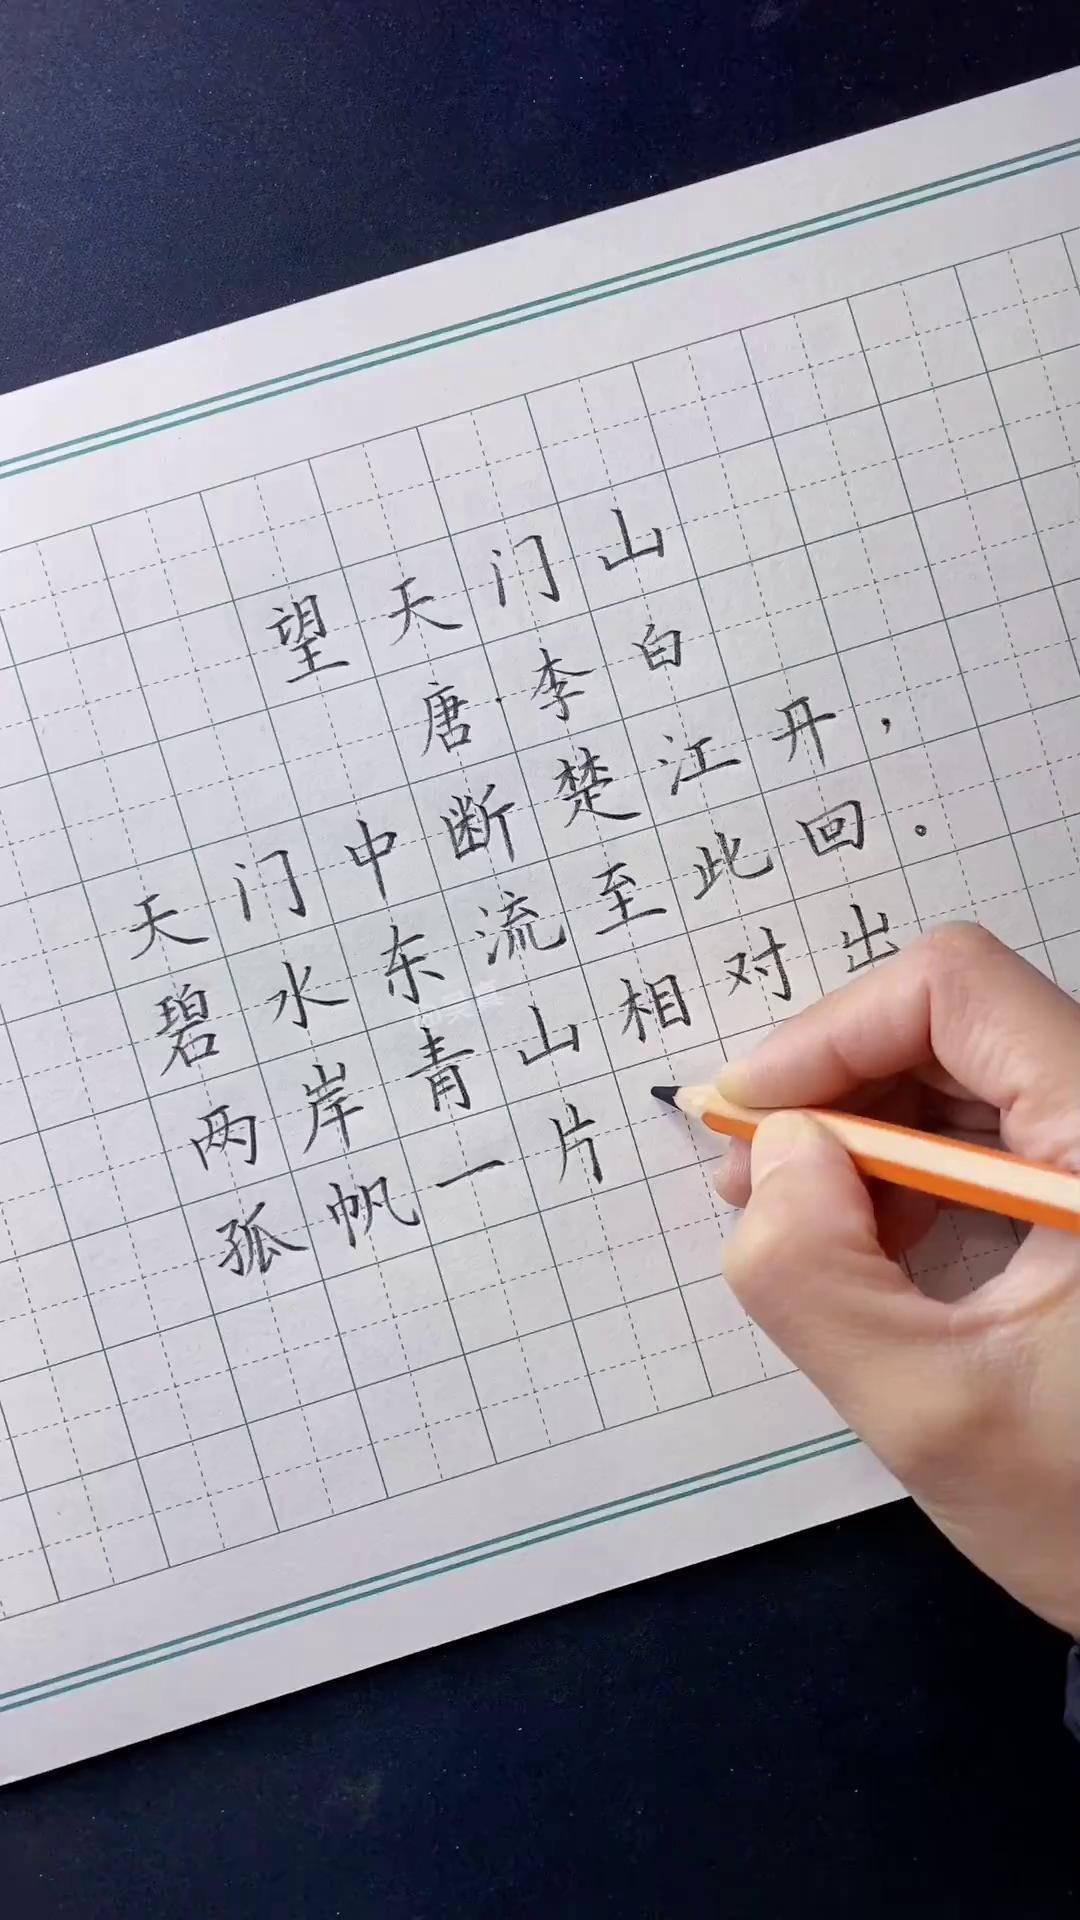 望天门山
唐·李白
天门中断楚江开，
碧水东流至此回。
两岸青山相对出
孤帆一片